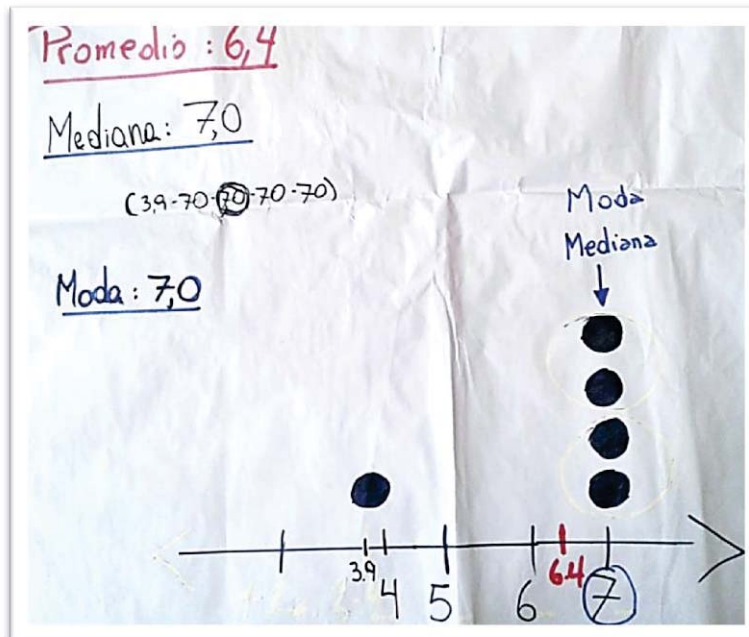 Promedio : 6,4
Mediana: 7,0
(3,9-70-70-70-70)
Moda
Mediana
Moda: 7,0
3.9 4 5 6 6.4 7